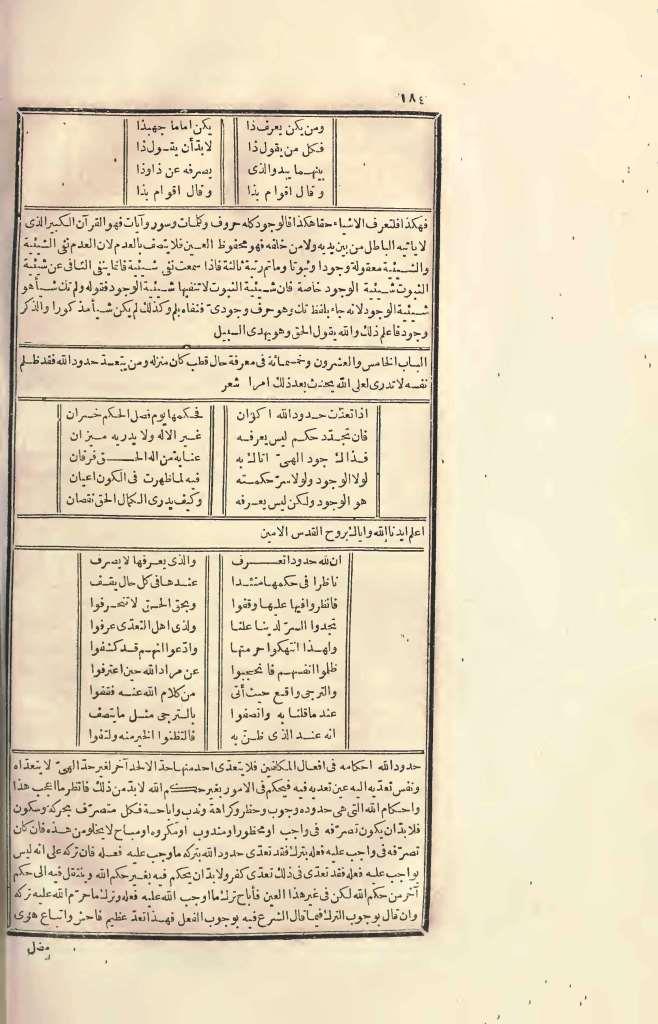 ١٨٤
ومن يكن يعرف ذا يكن اماما جهبذا
فكل من يقول ذا لابد أن يقول ذا
بينهما يبدو الذى يصرفه عن ذا وذا
وقال اقوام بذا وقال اقوام بذا
فهكذا فلتعرف الاشياء حقا هكذا فالوجود كله حروف وكلمات وسور وآيات فهو القرآن الكبير الذى
لا يأتيه الباطل من بين يديه ولا من خلفه فهو محفوظ العين فلا يتصف بالعدم لان العدم نفى الشيئية
والشيئية معقولة وجودا وثبوتا وما ثم رتبة ثالثة فاذا سمعت نفى شيئية فانما ينفى النافى عن شيئية
الثبوت شيئية الوجود خاصة فان شيئية الثبوت لا تنفيها شيئية الوجود فقوله ولم تك شيأ هو
شيئية الوجود لانه جاء بلفظ تك وهو حرف وجودى فنفاه بلم وكذلك لم يكن شيأ مذكورا والذكر
وجود فاعلم ذلك والله يقول الحق وهو يهدى السبيل
الباب الخامس والعشرون وخمسمائة فى معرفة حال قطب كان منزله ومن يتعد حدود الله فقد ظلم
نفسه لا تدرى لعل الله يحدث بعد ذلك امرا شعر
اذا تعدت حدود الله اكوان فحكمها يوم فصل الحكم خسران
فان تجدد حكم ليس يعرفه غير الاله ولا يدريه ميزان
فذاك جود الهى اتاك به عناية من اله الحق فرقان
لولا الوجود ولولا سر حكمته فيه لما ظهرت فى الكون اعيان
هو الوجود ولكن ليس يعرفه وكيف يدرى الكمال الحق نقصان
اعلم ايدنا الله واياك بروح القدس الامين
ان لله حدودا تعرف والذى يعرفها لا يصرف
ناظرا فى حكمها متئدا عندها فى كل حال يقف
فانظروا فيها عليها وقفوا وبحق الحق لا تنحرفوا
تجدوا السر لدينا علنا ولذى اهل التعدى عرفوا
ولهذا انتهكوا حرمتها وادعوا انهم قد كشفوا
ظلموا انفسهم فانحجبوا عن مراد الله حين اعترفوا
والترجى واقع حيث أتى من كلام الله عنه فقفوا
عند ما قلنا به وانصفوا بالترجى مثل ما يتصف
انه عند الذى ظن به فالتظنوا الخير منه ولتفوا
حدود الله احكامه فى افعال المكلفين فلا يتعدى احد منها حدا الا لحد آخر لغير حد الهى لا يتعداه
ونفس تعديه اليه عين تعديه فيه فيحكم فى الامور بغير حكم الله لابد من ذلك فانظر ما اعجب هذا
واحكام الله التى هى حدوده وجوب وحظر وكراهة وندب واباحة فكل متصرف بحركة وسكون
فلابد ان يكون تصرفه فى واجب او محظور او مندوب او مكروه او مباح لا يخلو من هذه فان كان
تصرفه فى واجب عليه فعله بترك فقد تعدى حدود الله بتركه ما وجب عليه فعله فان تركه على انه ليس
بواجب عليه فعله فقد تعدى فى ذلك تعدى كفر ولابد ان يحكم فيه بغير حكم الله وينتقل فيه الى حكم
آخر من حكم الله لكن فى غير هذا العين فأباح ترك ما اوجب الله عليه فعله وترك ما حرم الله عليه تركه
وان قال بوجوب الترك فيما قال الشرع فيه بوجوب الفعل فهذا تعد عظيم فاحش واتباع هوى
مضل